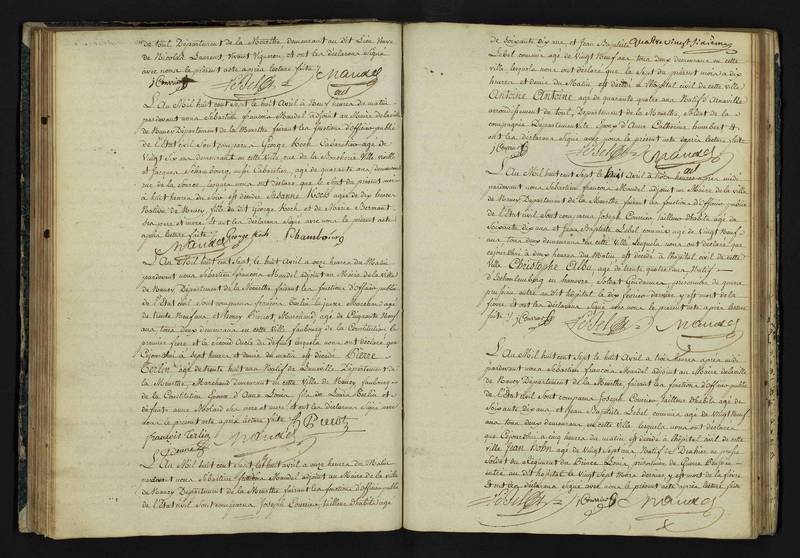 de toul, Département de la Meurthe demeurant au dit Lieu Veuve
de Nicolas Laurent, Vivant Vigneron et ont les déclarans Signé
avec nous le présent acte après lecture faite
Mandel
adt
L'An Mil huit cent Sept le huit Avril à neuf heures du matin
pardevant nous Sébastien françois Mandel adjoint au Maire de la ville
de Nancy Département de la Meurthe faisant les fonctions d'officier public
de l'Etat civil Sont comparus George Koch Cabaretier agé de
Vingt Six demeurant en cette ville rue de la Boucherie Ville vieille
et Jacques Schambourg aussi Cabaretier, agé de quarante ans, demeurant
rue de la Source Lesquels nous ont déclaré que le Sept du présent mois
à huit heures du Soir est décédée Susanne Koch agée de dix heures
Native de Nancy, fille du dit George Koch et de Marie
Ses père et mère, et ont les déclarans Signé avec nous le présent acte
après lecture faite
Mandel George Koch Schambourg
L'An Mil huit cent Sept, le huit Avril à onze heures du Matin
pardevant nous Sébastien françois Mandel adjoint au Maire de la Ville
de Nancy, Département de la Meurthe faisant les fonctions d'officier public
de l'Etat civil Sont comparus françois Terlin le jeune Marchand agé
de trente Neuf ans et Henry Pierrot, Marchand agé de Cinquante Neuf
ans, tous deux demeurans en cette Ville faubourg de la Constitution le
premier frère et le Second Oncle du défunt lesquels nous ont déclaré que
Cejourd'hui à Sept heures et demie du matin est décédé Pierre
Terlin agé de trente huit ans Natif de Département de
la Meurthe, Marchand demeurant en cette Ville de Nancy faubourg
de la Constitution Epoux d'Anne Louis, fils de Louis Terlin et
défunte Anne Ses père et mère et ont les déclarans Signé avec
nous le présent acte après lecture faite Pierrot
françois Terlin
Le jeune Mandel
L'An Mil huit cent Sept, le huit avril à onze heures du Matin
pardevant nous Sébastien françois Mandel adjoint au Maire de la ville
de Nancy Département de la Meurthe, faisant les fonctions d'officier public
de l'Etat civil Sont comparus Joseph Courrier, tailleur d'habits agé
Quatre vingt Sixième
de Soixante dix ans, et Jean Baptiste
Lebel commis agé de Vingt Neuf ans tous deux demeurans en cette
ville Lesquels nous ont déclaré que le Sept du présent mois à dix
heures et demie du Matin est décédé à l'hôpital civil de cette ville
Antoine Antoine agé de quarante quatre ans Natif d'Arnaville
arrondissement de toul, Département de la Meurthe, Soldat de la
compagnie Départementale Epoux d'Anne Catherine humbert et
ont les déclarans Signé avec nous le présent acte après lecture faite
J Courrier
Lebel Mandel
adt
L'An Mil huit cent Sept le huit Avril à trois heures après midi
pardevant nous Sébastien françois Mandel adjoint au Maire de la Ville
de Nancy, Département de la Meurthe faisant les fonctions d'Officier public
de l'Etat civil Sont comparus Joseph Courrier, tailleur d'habits agé de
Soixante dix ans et Jean Baptiste Lebel commis agé de Vingt Neuf
ans tous deux demeurans en cette Ville Lesquels nous ont déclaré que
cejourd'hui à deux heures du Matin est décédé à l'hôpital civil de cette
Ville Christophe Albu agé de trente quatre ans Natif
en hanovre prisonnier de guerre
prussien entré au dit hôpital le dix fevrier dernier, y est mort de la
fièvre et ont les déclarans Signé avec nous le présent acte après lecture
faite J Courrier Lebel Mandel
L'An Mil huit cent Sept le huit Avril à trois heures après midi
pardevant nous Sébastien françois Mandel adjoint au Maire de la ville
de Nancy Département de la Meurthe, faisant les fonctions d'officier public
de l'Etat civil Sont comparus Joseph Courrier tailleur d'habits agé de
Soixante dix ans et Jean Baptiste Lebel commis agé de Vingt Neuf
ans tous deux demeurans en cette ville lesquels nous ont déclaré
que Cejourd'hui à cinq heures du matin est décédé à l'hôpital civil de cette
ville Jean Kohn agé de Vingt Sept ans Natif de en prusse
Soldat du Régiment du Prince Louis, prisonnier de Guerre Prussien
entré au dit hôpital le vingt Sept Mars dernier y est mort de la fièvre
et ont les déclarans Signé avec nous le présent acte après lecture faite
Lebel J Courrier Mandel